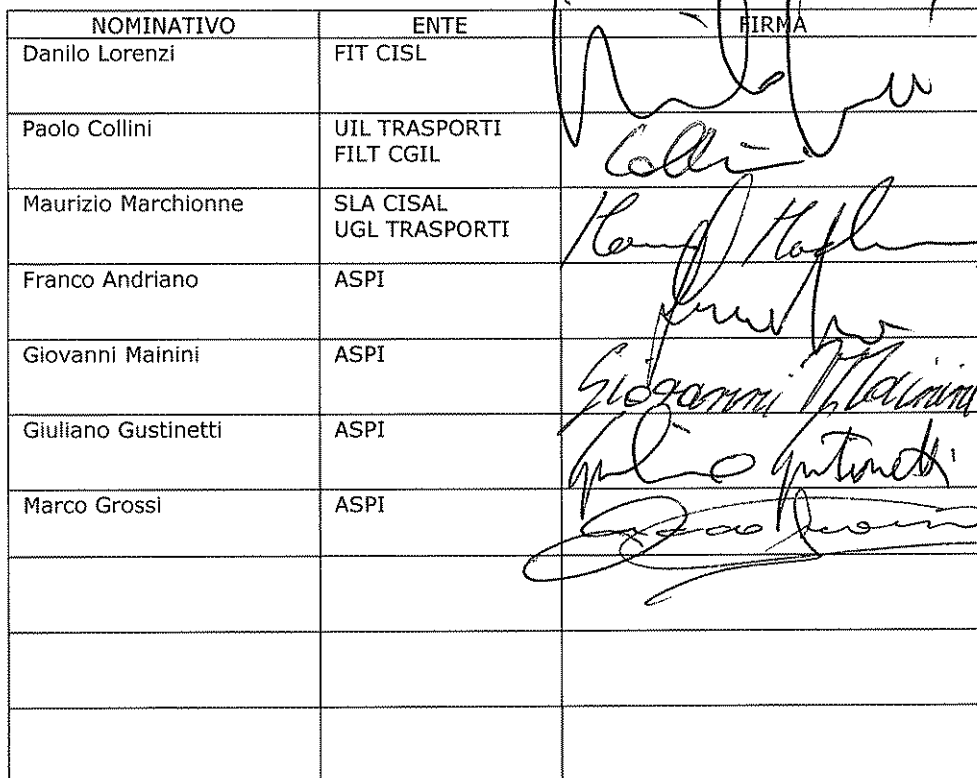 NOMINATIVO ENTE FIRMA
Danilo Lorenzi FIT CISL
Paolo Collini UIL TRASPORTI
FILT CGIL
Collini
Maurizio Marchionne SLA CISAL
UGL TRASPORTI
Franco Andriano ASPI
Giovanni Mainini ASPI Giovanni Mainini
Giuliano Gustinetti ASPI
Marco Grossi ASPI